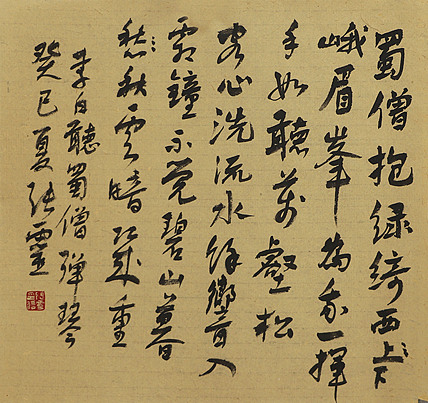 蜀僧抱緑綺西上下
峨眉峯為我一揮
手如聽萬壑松
客心洗流水餘響入
霜鐘不覺碧山暮
愁秋雲暗幾重
李白聽蜀僧彈琴
癸巳夏張靈